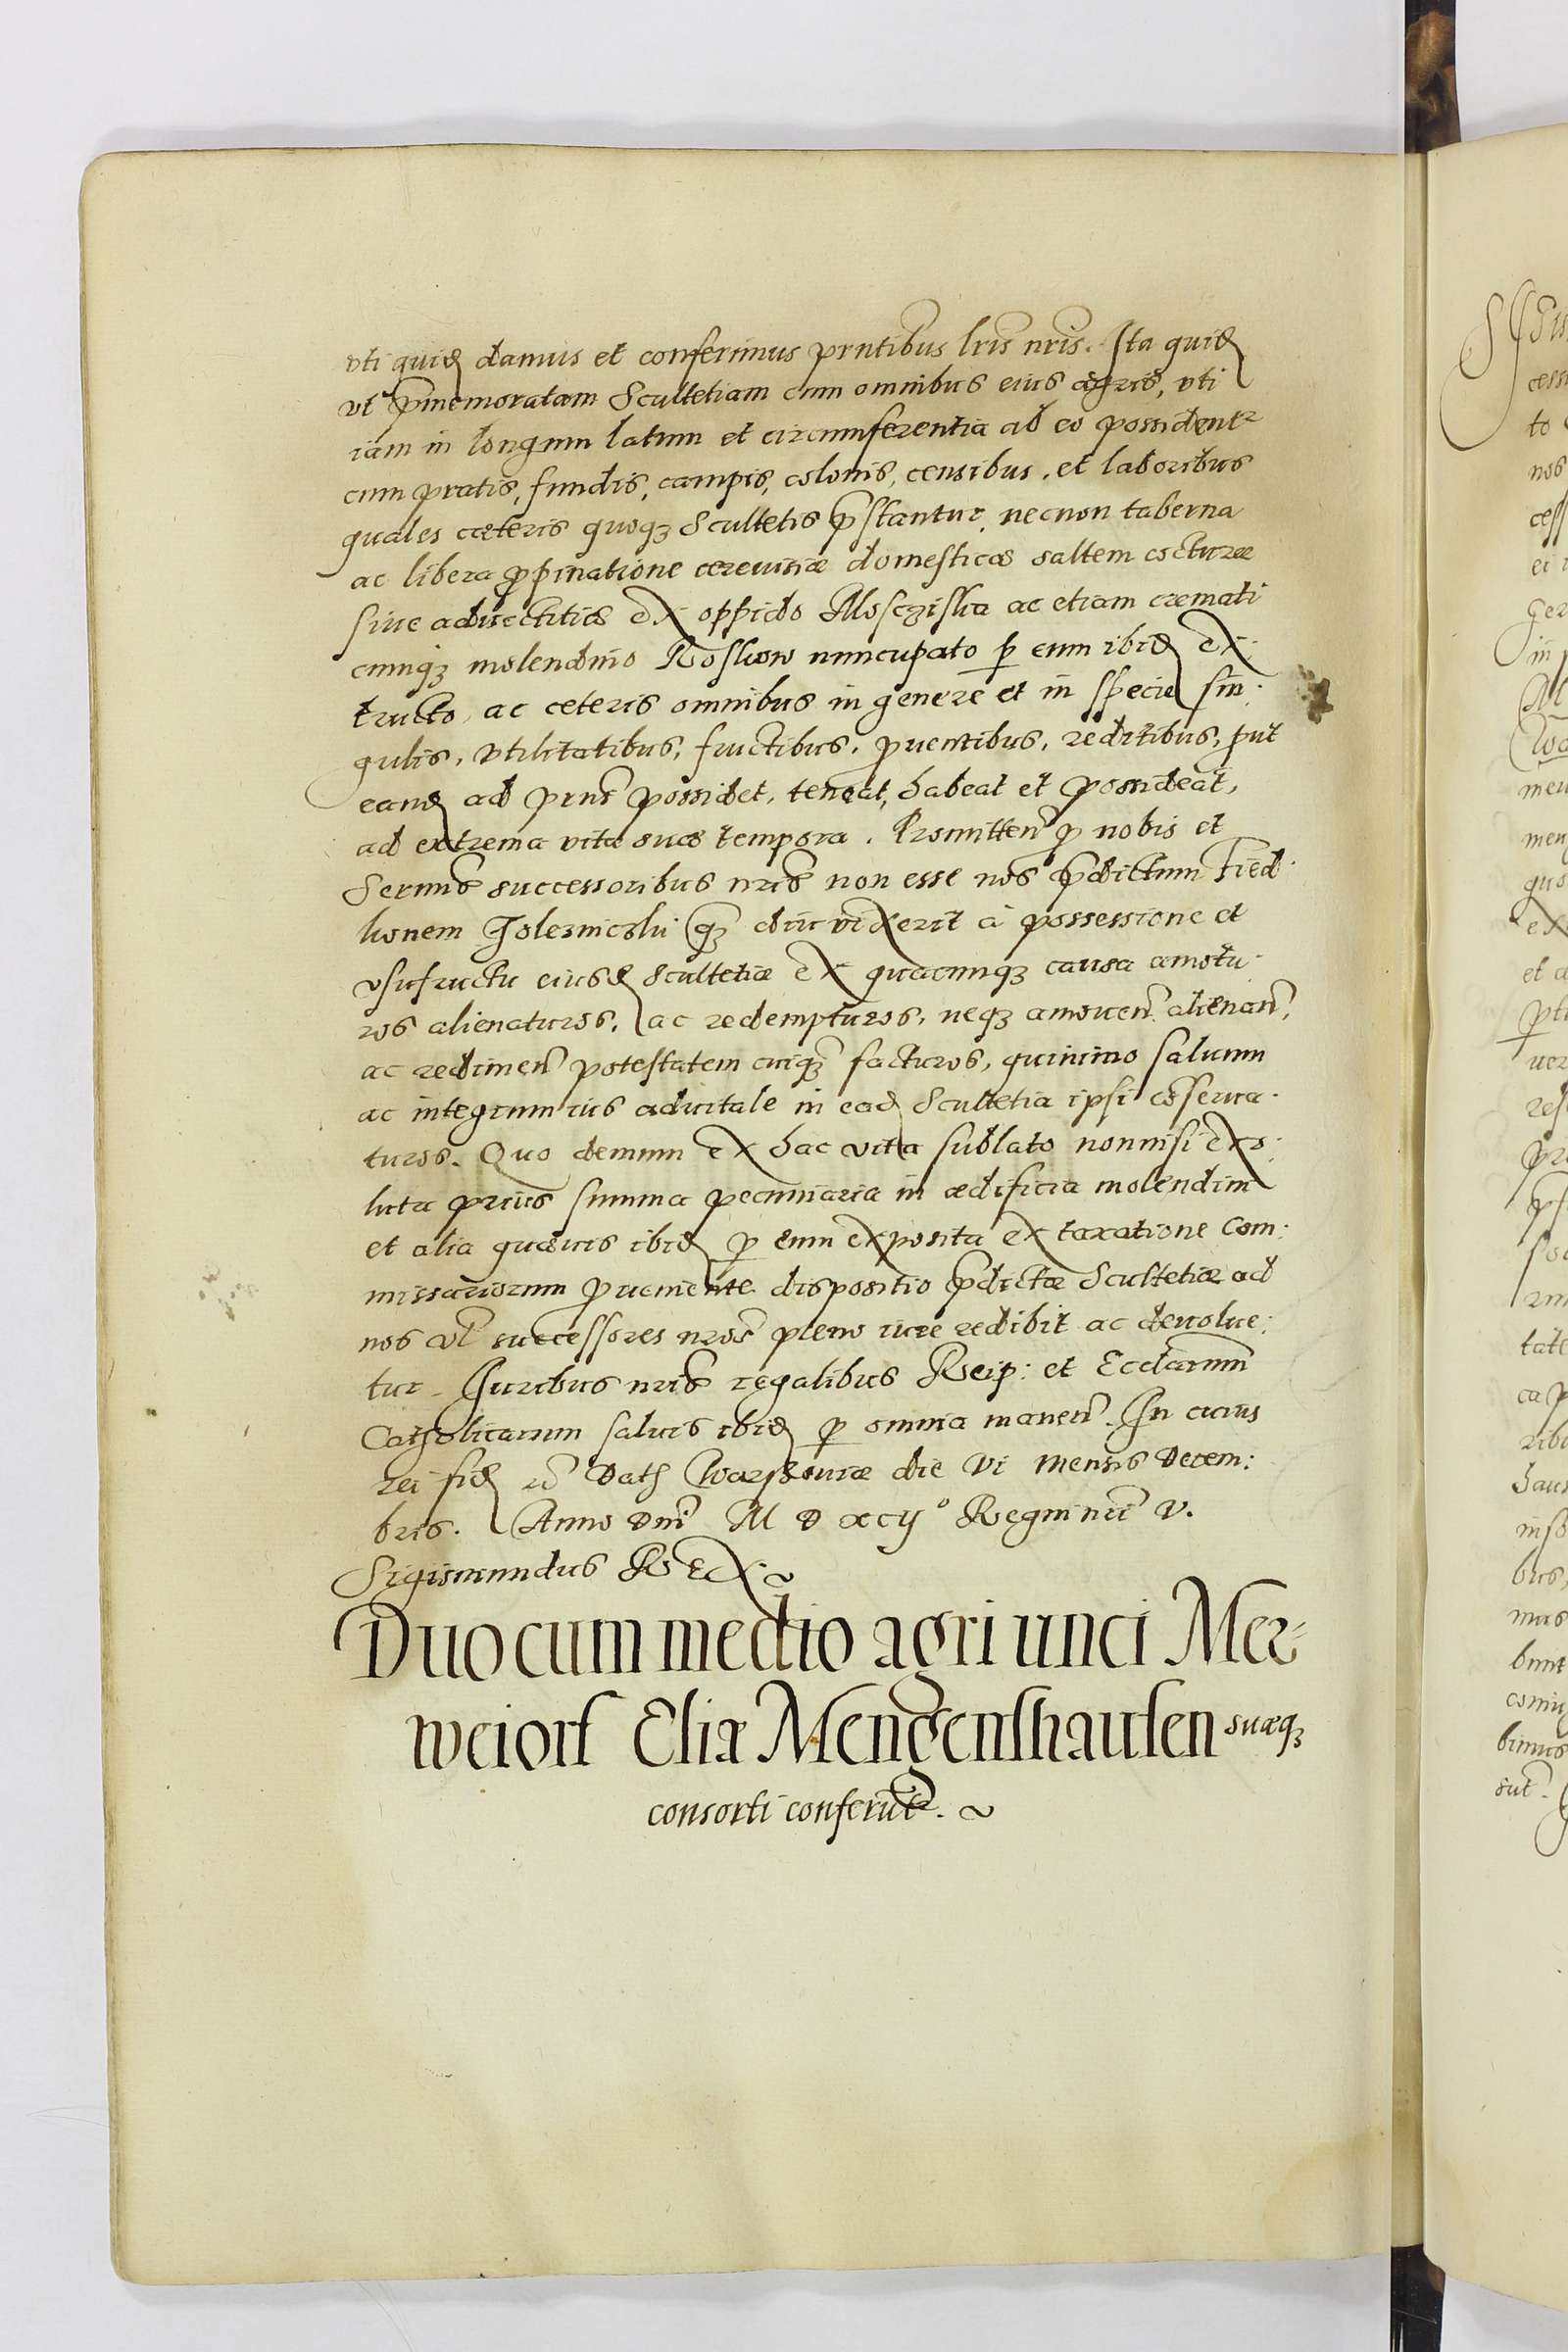 vti quid damus et conferimus prntibus lris nris. Ita quid
vt pmemoratam Scultetiam cum omnibus eius agris, vti
iam in longum latum et circumferentia ab eo possident
cum pratis, fundis, campis, colonis, censibus, et laboribus
quales cæteris quoq Scultetis pstantur, necnon taberna
ac libera ppinatione cereuisiæ domesticæ saltem cocturæ
siue aduectitiæ ex oppido Moscziska ac etiam cremati
cumq molendino Koslow nuncupato p eum ibid ex:
tructo, ac ceteris omnibus in genere et in specie sin:
gulis, vtilitatibus, fructibus, puentibus, reditibus, put
eand ad prns possidet, teneat, habeat et possideat,
ad extrema vitæ suæ tempora. Promitten p nobis et
Sermis successoribus nris non esse nos pdictum Fied:
konem q diu vixerit à possessione et
vsufructu eiusd Scultetiæ ex quacunq causa amotu:
ros alienaturos, ac redempturos, neq amouen alienan,
ac redimen potestatem cuiq facturos, quinimo saluum
ac integrum ius aduitale in ead Scultetia ipsi cõserua:
turos. Quo demum ex hac vita sublato nonnisi exo:
luta prius summa pecuniaria in ædificia molendini
et alia quæuis ibid p eum exposita ex taxatione Com:
missariorum pueniente dispositio pdictæ Scultetiæ ad
nos vl successores nros pleno iure redibit ac deuolue:
tur. Iuribus nris regalibus Reip: et Ecclarum
Catholicarum saluis ibid p omnia manen. In cuius
rei fid Dat Warssouiæ die VI Mensis Decem:
bris. Anno Dni M D xcij° Regni nri V.
Sigismundus Rex.
Duo cum medio agri unci Mer=
weiorf Eliæ Mengenshausen suæq
consorti conferũt.